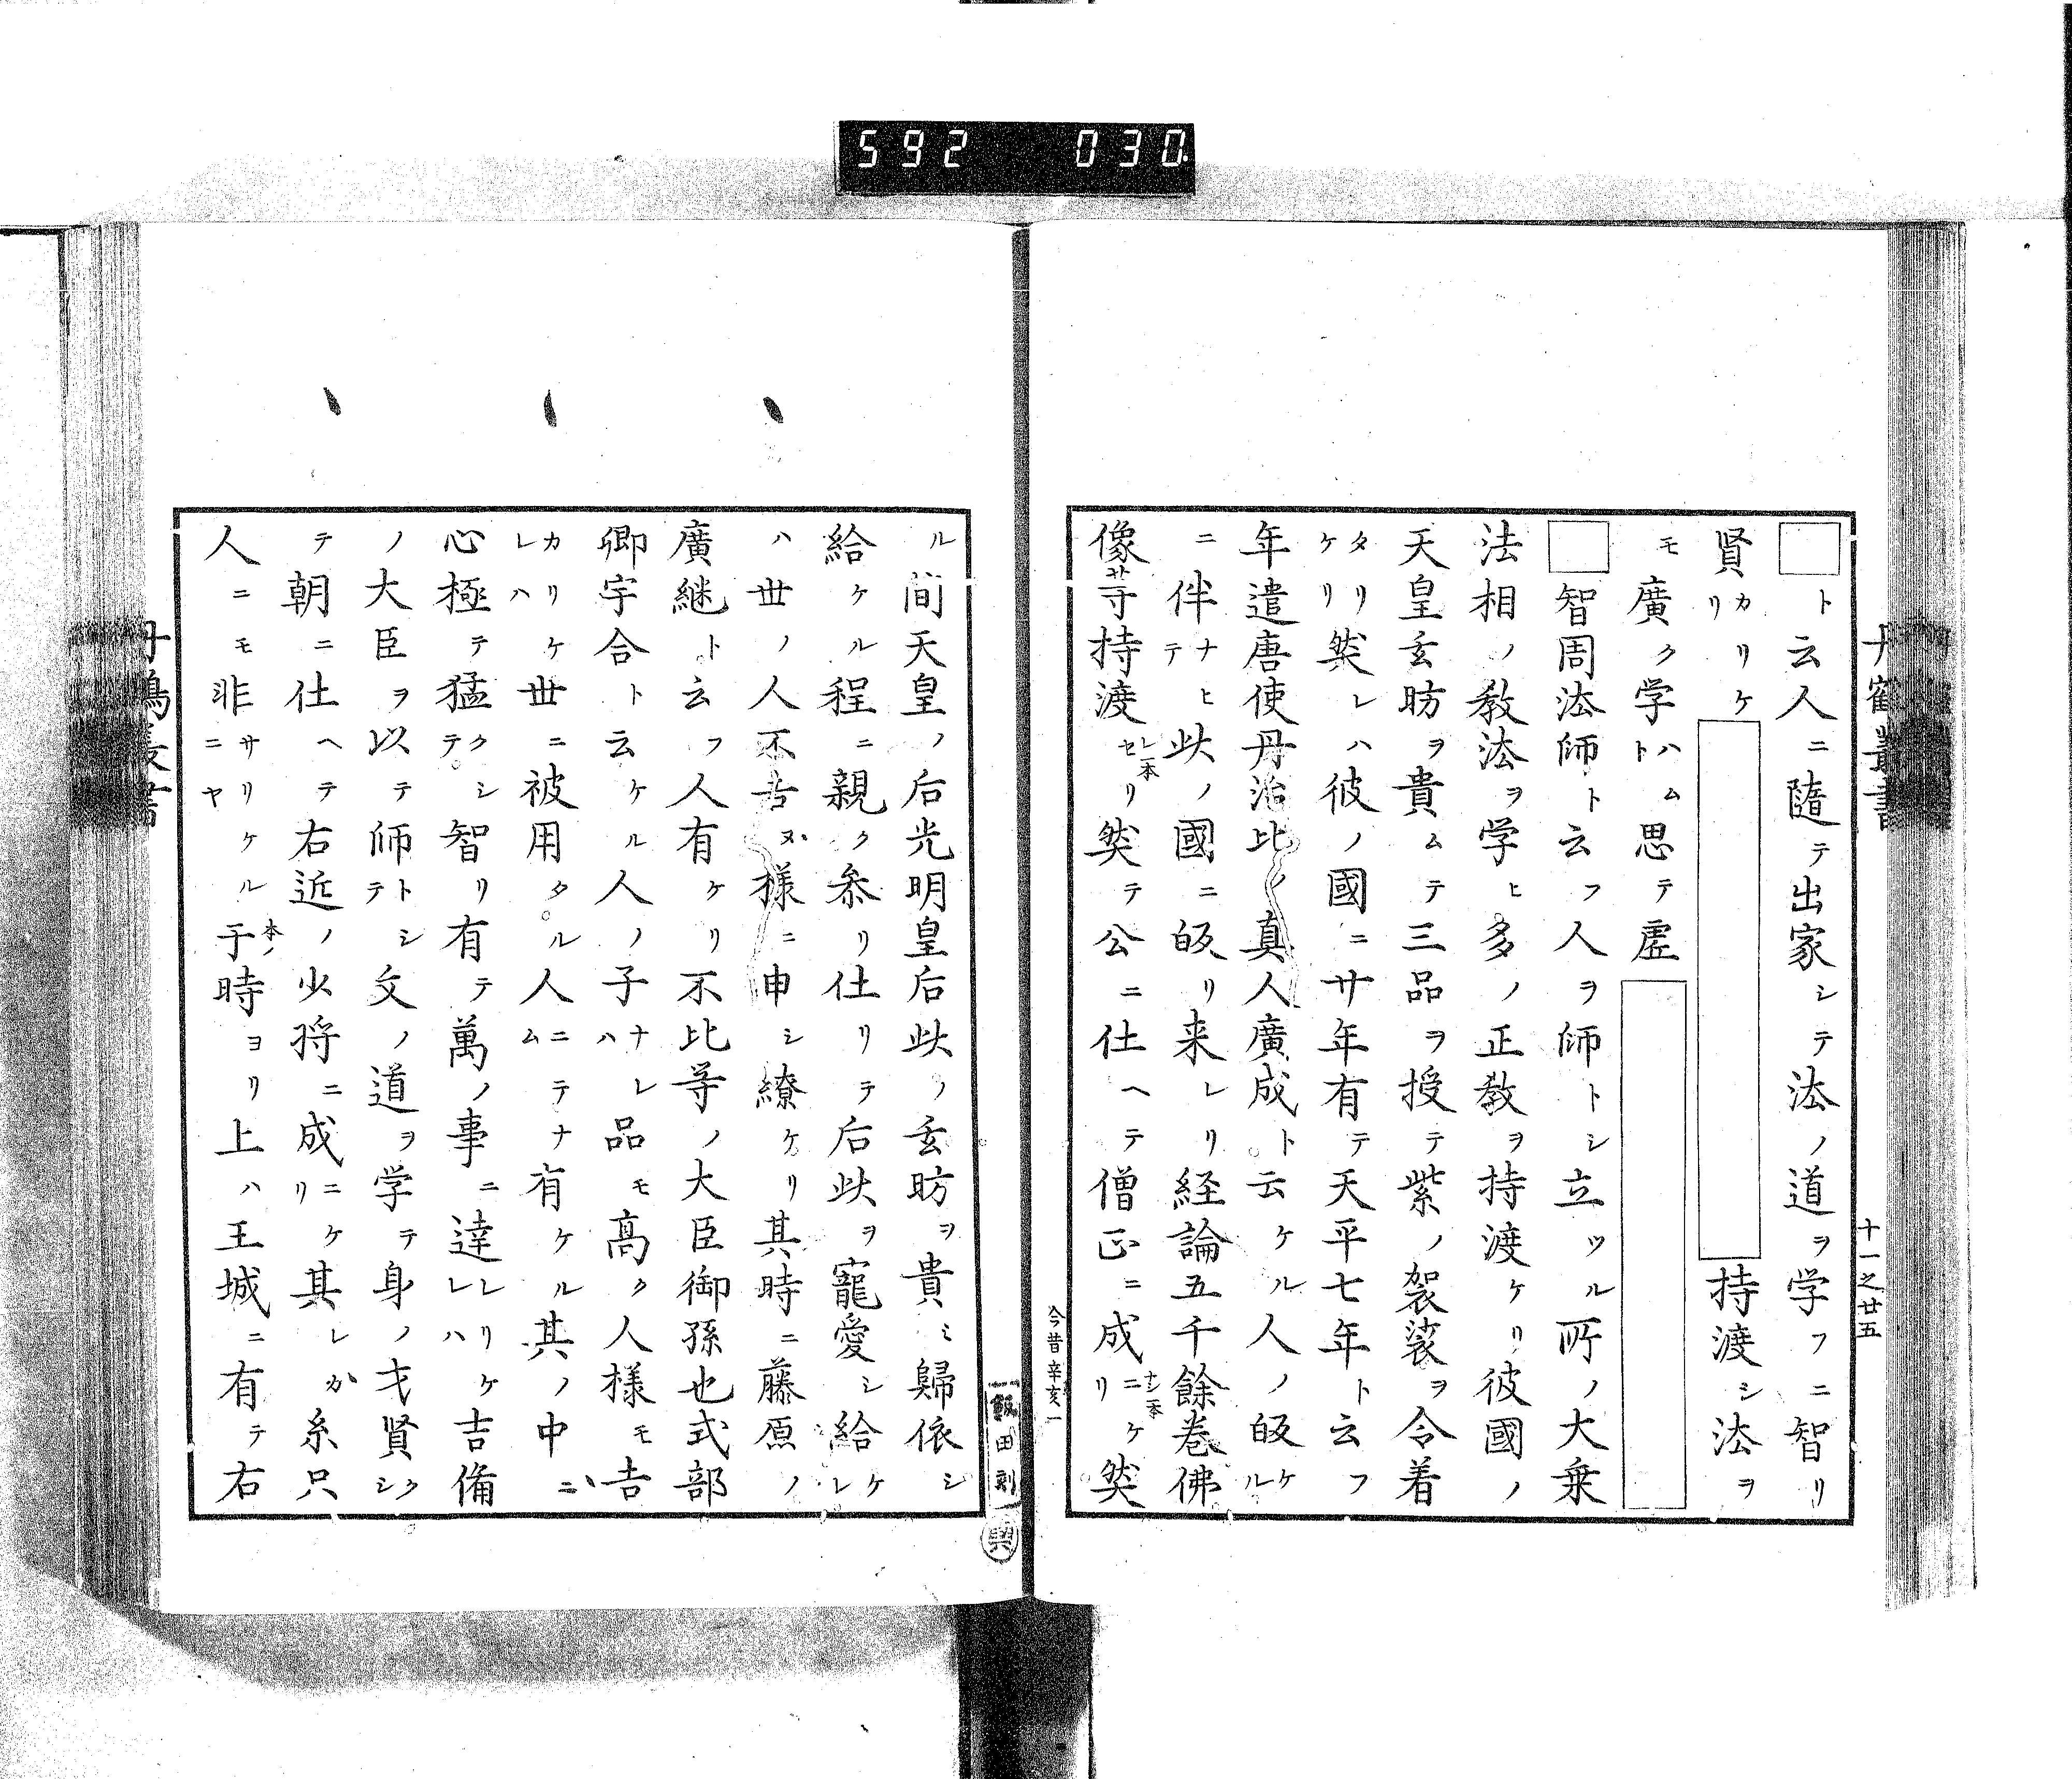 592 030
丹鶴叢書
十一之廿五
□ト云人ニ隨テ出家シテ法ノ道ヲ学フニ智リ
賢カリケリ 持渡シ法ヲ
モ廣ク学ハムト思テ虚
□智周法師ト云フ人ヲ師トシ立ツル所ノ大乗
法相ノ教法ヲ学ヒ多ノ正教ヲ持渡ケリ彼國ノ
天皇玄昉ヲ貴ムテ三品ヲ授テ紫ノ袈裟ヲ令着
タリケリ然レハ彼ノ國ニ廿年有テ天平七年ト云フ
年遣唐使丹治比ノ真人廣成ト云ケル人ノ皈ケル
ニ伴ナヒテ此ノ國ニ皈リ来レリ経論五千餘巻佛
像等持渡セレ一本リ然テ公ニ仕ヘテ僧正ニ成ニケリナシ一本然
今昔 辛亥一
飯田刻
ル間天皇ノ后光明皇后此ノ玄昉ヲ貴ミ歸依シ
給ケル程ニ親ク参リ仕リテ后此ヲ寵愛シ給ケレ
ハ世ノ人不吉ヌ様ニ申シ繚ケリ其時ニ藤原ノ
廣継ト云フ人有ケリ不比等ノ大臣御孫也式部
卿宇合ト云ケル人ノ子ナレハ品モ高ク人様モ吉
カリケレハ世ニ被用タル人ニテナム有ケル其ノ中ニ
心極テ猛クシテ智リ有テ萬ノ事ニ達レリケレハ吉備
ノ大臣ヲ以テ師トシテ文ノ道ヲ学テ身ノ才賢クシ
テ朝ニ仕ヘテ右近ノ少将ニ成ニケリ其レか糸只
人ニモ非サリケルニヤ于本ノ時ヨリ上ハ王城ニ有テ右
丹鶴叢書